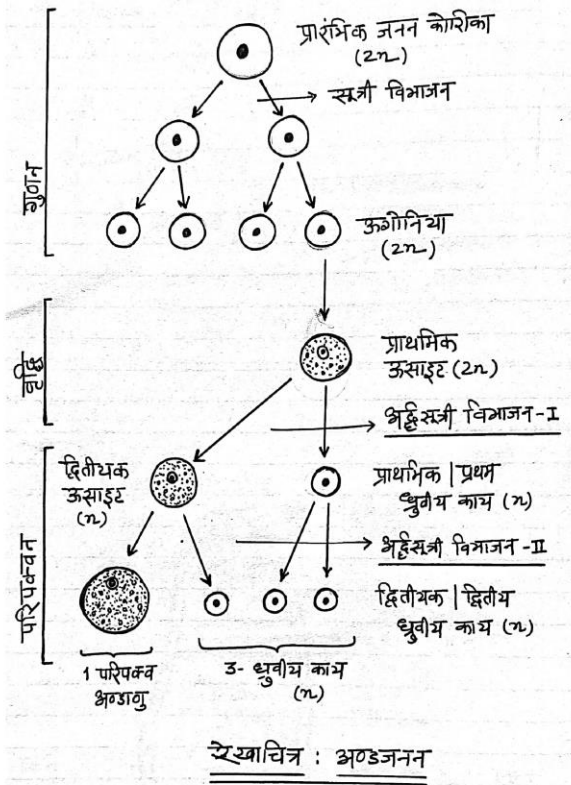 प्रारंभिक जनन कोशिका
(2n)
सूत्री विभाजन
गुणन
ऊगोनिया
(2n)
वृद्धि
प्राथमिक
ऊसाइट (2n)
अर्द्धसूत्री विभाजन-I
परिपक्वन
द्वितीयक
ऊसाइट
(n)
प्राथमिक | प्रथम
ध्रुवीय काय (n)
अर्द्धसूत्री विभाजन-II
द्वितीयक | द्वितीय
ध्रुवीय काय (n)
1 परिपक्व
अण्डाणु
3- ध्रुवीय काय
(n)
रेखाचित्र : अण्डजनन